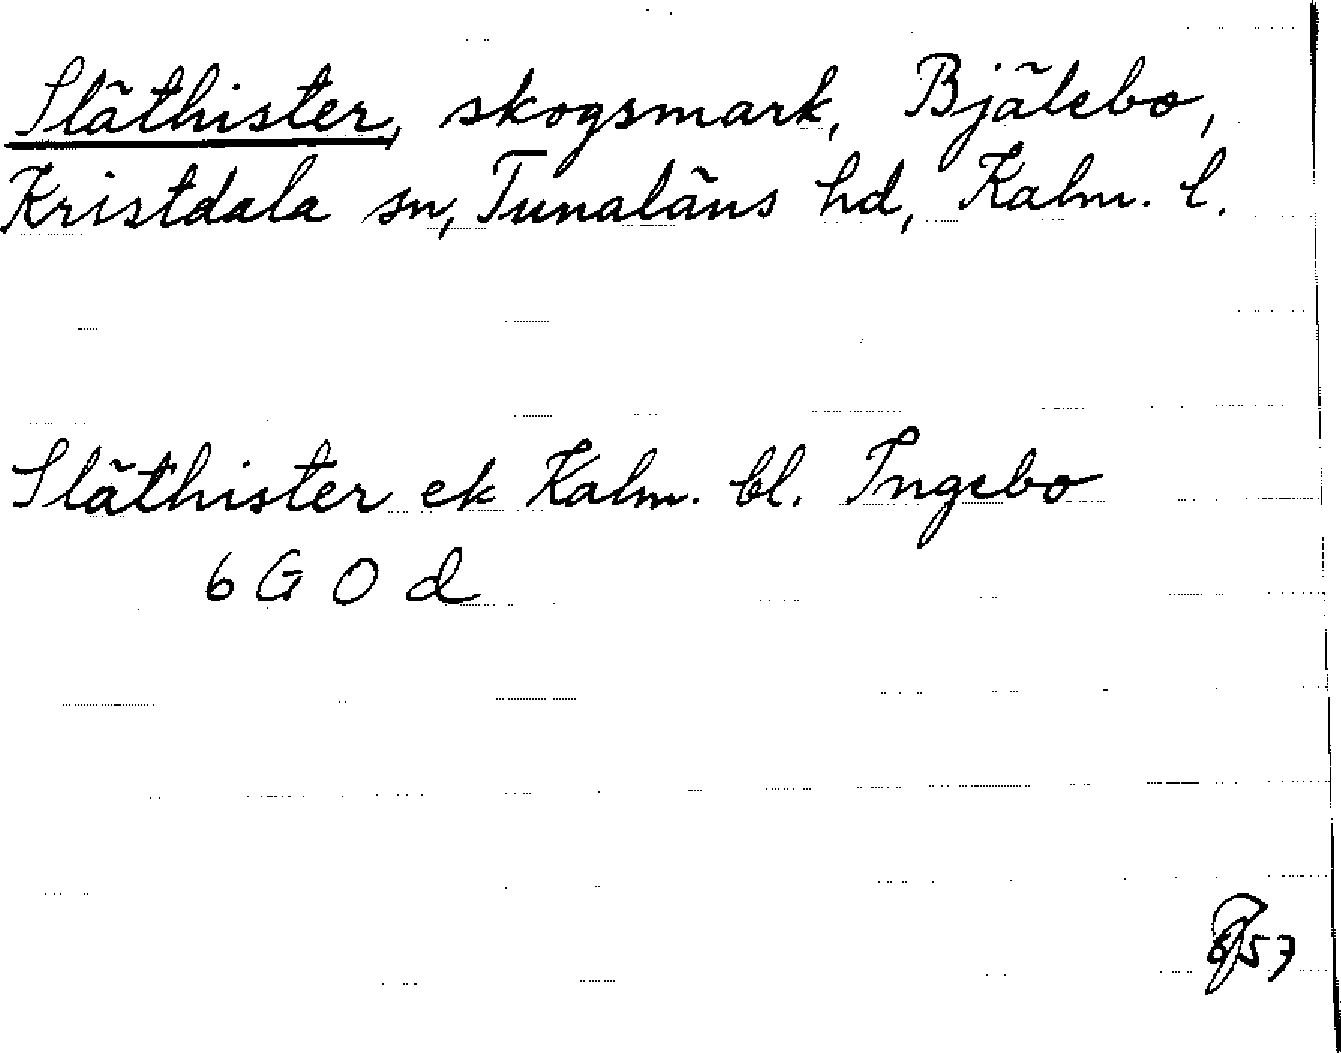 Släthister, skogsmark, Bjälebo,
Kristdala sn, Tunaläns hd, Kalm. l.
Släthister ek Kalm. bl. Ingebo
6 G O d
57